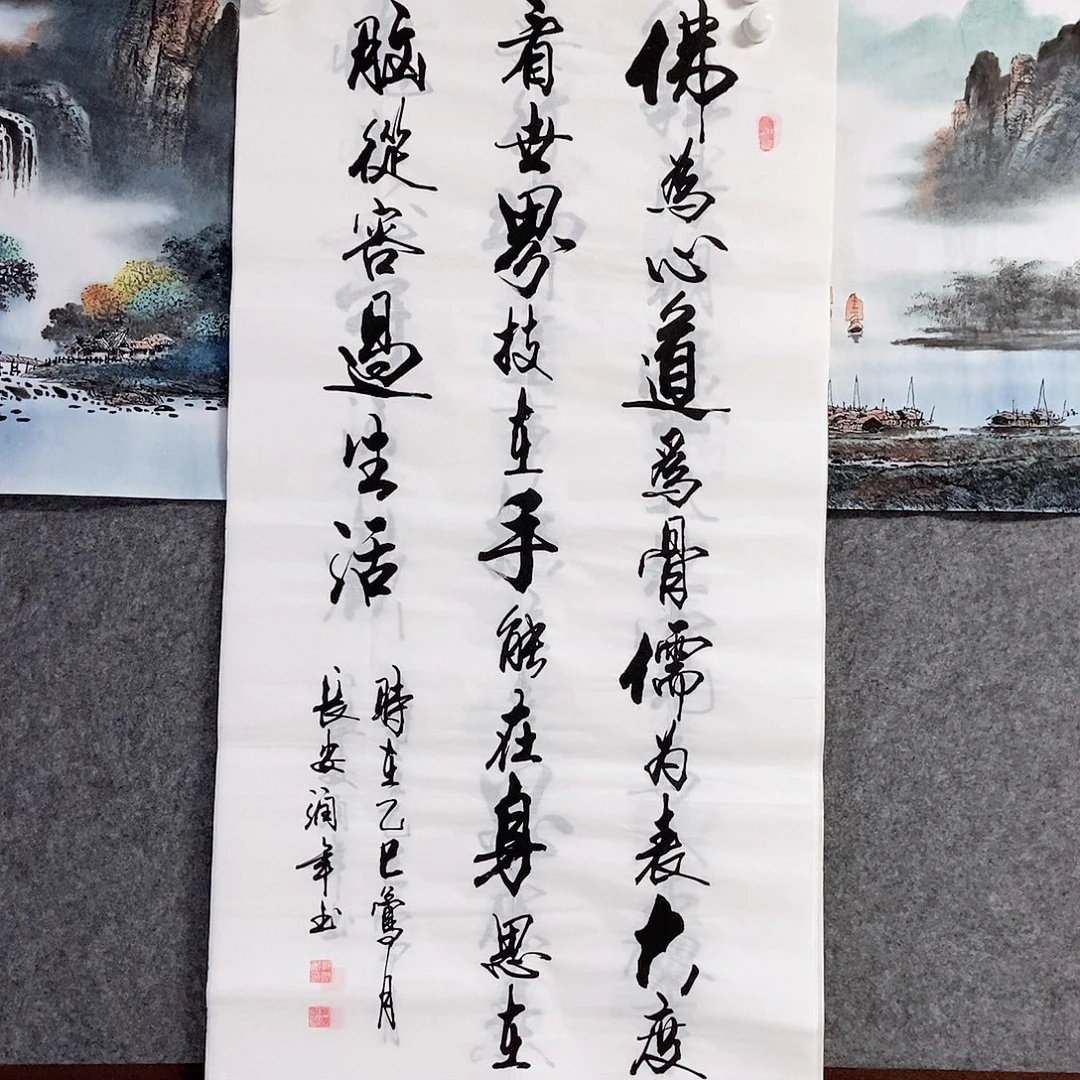 佛為心道為骨儒为表大度
看世界技在手能在身思在
脑從容過生活
時在乙巳鶯月
長安潤年书